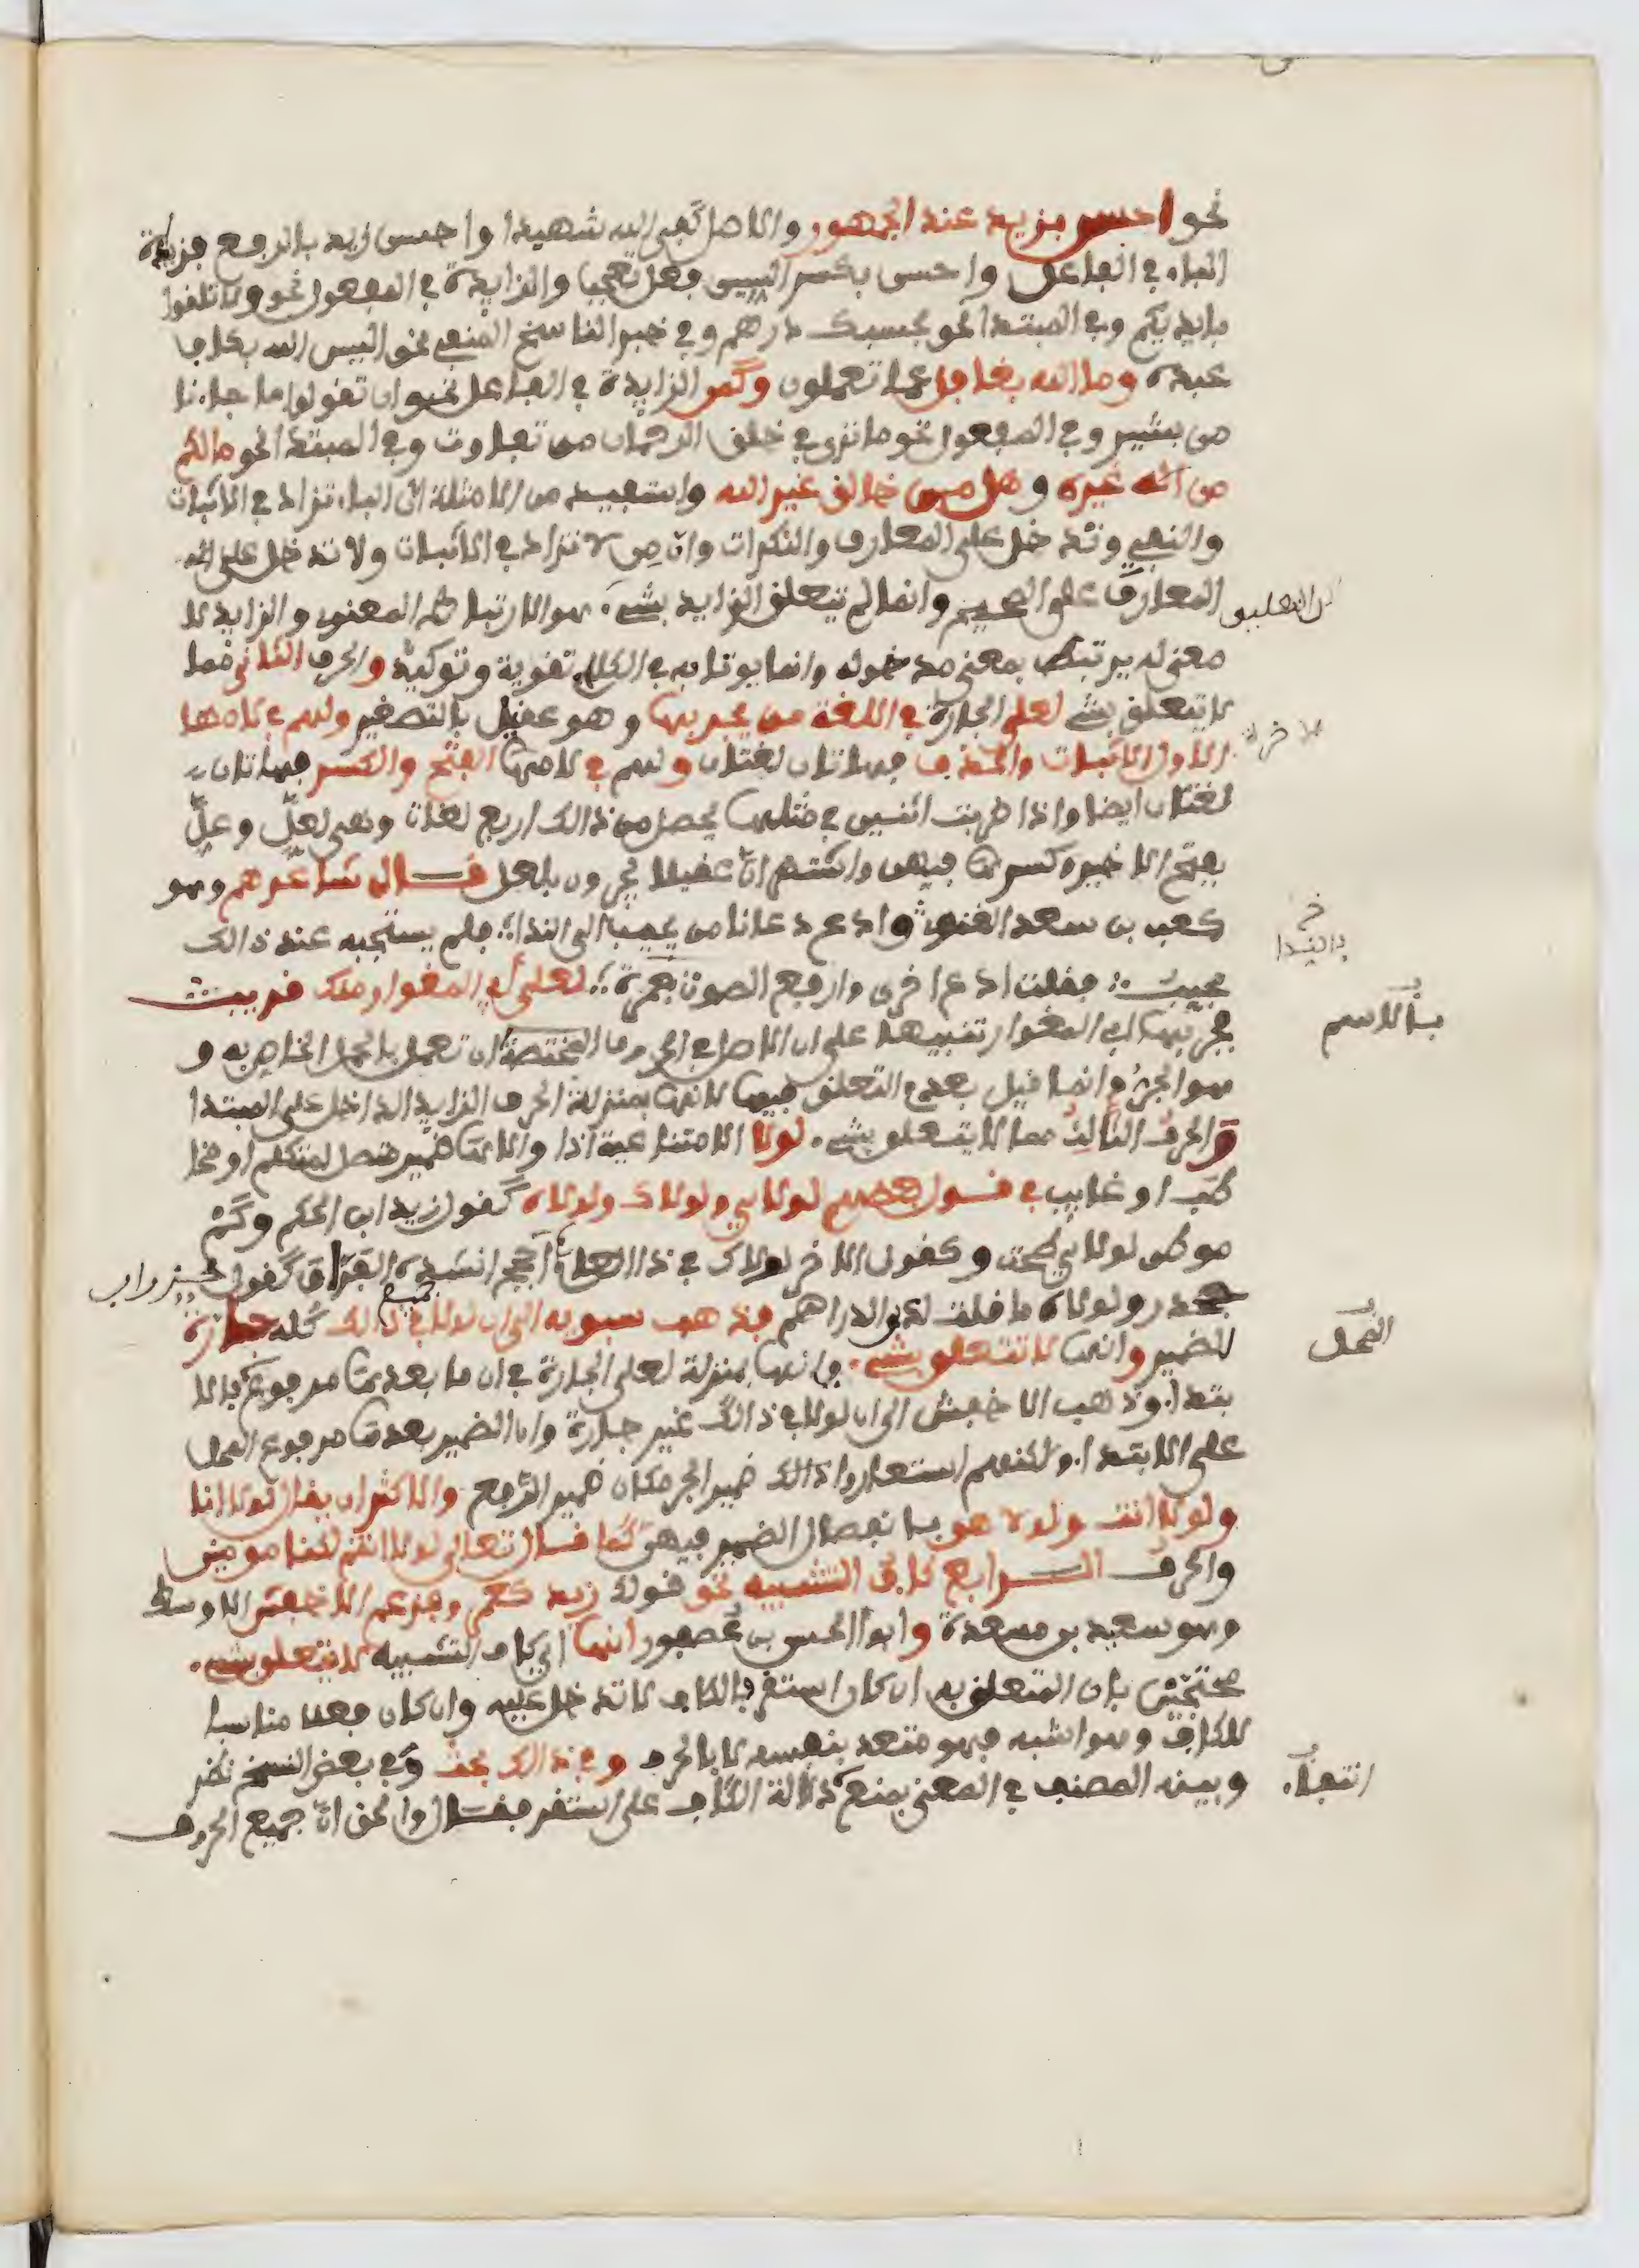 نحو احسن بزيد عند الجمهور والاصل كفى الله شهيدا واحسن زيد بالرفع فزيدة
الباء في الفاعل واحسن بكسر السين فعل تعجب والزايدة في المفعول نحو ولا تلقوا
بايديكم وفي المبتدا نحو بحسبك درهم وفي خبر الناسخ المنفي نحو اليس الله بكاف
عبده وما الله بغافل عما تعملون وكمن الزايدة في الفاعل نحو ان تقولوا ما جاءنا
من بشير وفي المفعول نحو ما ترى في خلق الرحمان من تفاوت وفي المبتدا نحو مالكم
من اله غيره و هل من خالق غير الله واستفيد من الامثلة ان الباء تزاد في الاثبات
والنفي وتدخل على المعارف والنكرات وان من لا تزاد في الاثبات ولا تدخل على
المعارف على الصحيح وانما لم يتعلق الزايد بشيء هو الارتباط المعنوي والزايد لا
معنى له يرتبط بمعنى مدخوله وانما يوتا به في الكلام تقوية وتوكيدا والحرف الثاني مما
لا يتعلق بشيء لعل الجارة في اللغة من يجر بها وهو عقيل بالتصغير ولهم في لامها
الاول الاثبات والحذف فهاتان لغتان ولهم في لامها الفتح والكسر فهاتان
لغتان ايضا واذا ضربت اثنين في مثلها يحصل من ذالك اربع لغات وهي لعلّ وعلّ
بفتح الاخير وكسرها فيهن واشتهر انّ عقيلا يجرون بلعل قال شاعرهم وهو
كعب بن سعد الغنوي وادع دعانا من يجيب الى الندا فلم يستجبه عند ذالك
مجيب فقلت ادع اخرى وارفع الصوت جهرة لعل أبي المغوار منك قريب
فجر بها ابي المغوار تنبيها على ان الاصل في الحروف المختصة ان تعمل بالعمل الخاص به و
هو الجر وانما قيل بعدم التعلق فيها لانها بمنزلة الحرف الزايد الداخل على المبتدا
والحرف الثالث مما لا يتعلق بشيء لولا الامتناعية اذا ولاها ضمير متصل لمتكلم او مخا
طب او غايب في قول بعضهم لولاي ولولاك ولولاه كقول زيد ابن الحكم وكم
موطن لولاي طحت وكقول الاخر لولاك في ذا العام لم أحجج انشده الفراء كقول
جحدر ولولاه ما قلت لدي الدراهم فذهب سبويه الى ان لولا في ذالك كله جارة
للضمير وانها لا تتعلق بشيء وانها بمنزلة لعل الجارة في ان ما بعدها مرفوع بالا
بتداء وذهب الاخفش الى ان لولا في ذالك غير جارة وان الضمير بعدها مرفوع المحل
على الابتداء ولكنهم استعاروا ذالك ضمير الجر مكان ضمير الرفع والاكثر ان يقال لولا انا
ولولا انت ولولا هو بانفصال الضمير فيهن كما قال تعالى لولا انتم لكنا مومنين
والحرف الرابع كاف التشبيه نحو قولك زيد كعمرو فزعم الاخفش الاوسط
وهو سعيد بن مسعدة وابو الحسن بن عصفور انها اي كاف التشبيه لا تتعلق بشيء
محتجين بان المتعلق به ان كان استقر فالكاف لا تدل عليه وان كان فعلا مناسبا
للكاف وهو اشبه فهو متعد بنفسه لا بالحرف وفي ذالك بحث وفي بعض النسخ نظر
وبينه المصنف في المعنى بمنع دلالة الكاف على استقر فقال والحق انّ جميع الحروف
بالاسم
المحل